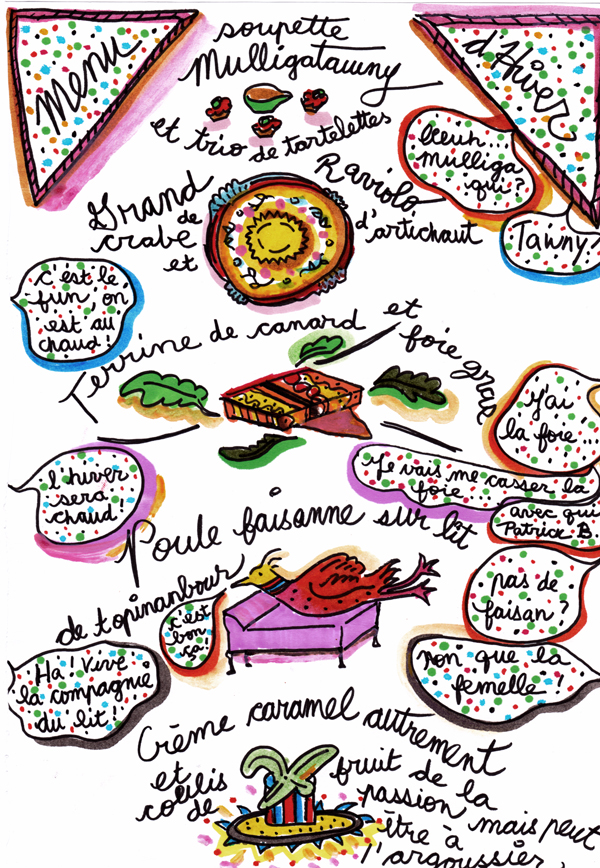 Menu
d'Hiver
soupette
Mulligatawny
et trio de tartelettes
Iceuh...
mulliga
qui?
Tawny!
Grand Raviolo
de
crabe
et
d'artichaut
c'est le
fun, on
est au
chaud!
Terrine de canard et
foie gras
J'ai
la foie...
Je vais me casser la
foie
avec qui
Patrick B.
l'hiver
sera
chaud!
Poule faisanne sur lit
de topinanbour
c'est
bon
ça!
pas de
faisan?
non que la
femelle!
Ha! Vive
la compagnie
du lit!
Crème caramel autrement
et
coulis
de
fruit de la
passion, mais peut
être à
l'argoussier